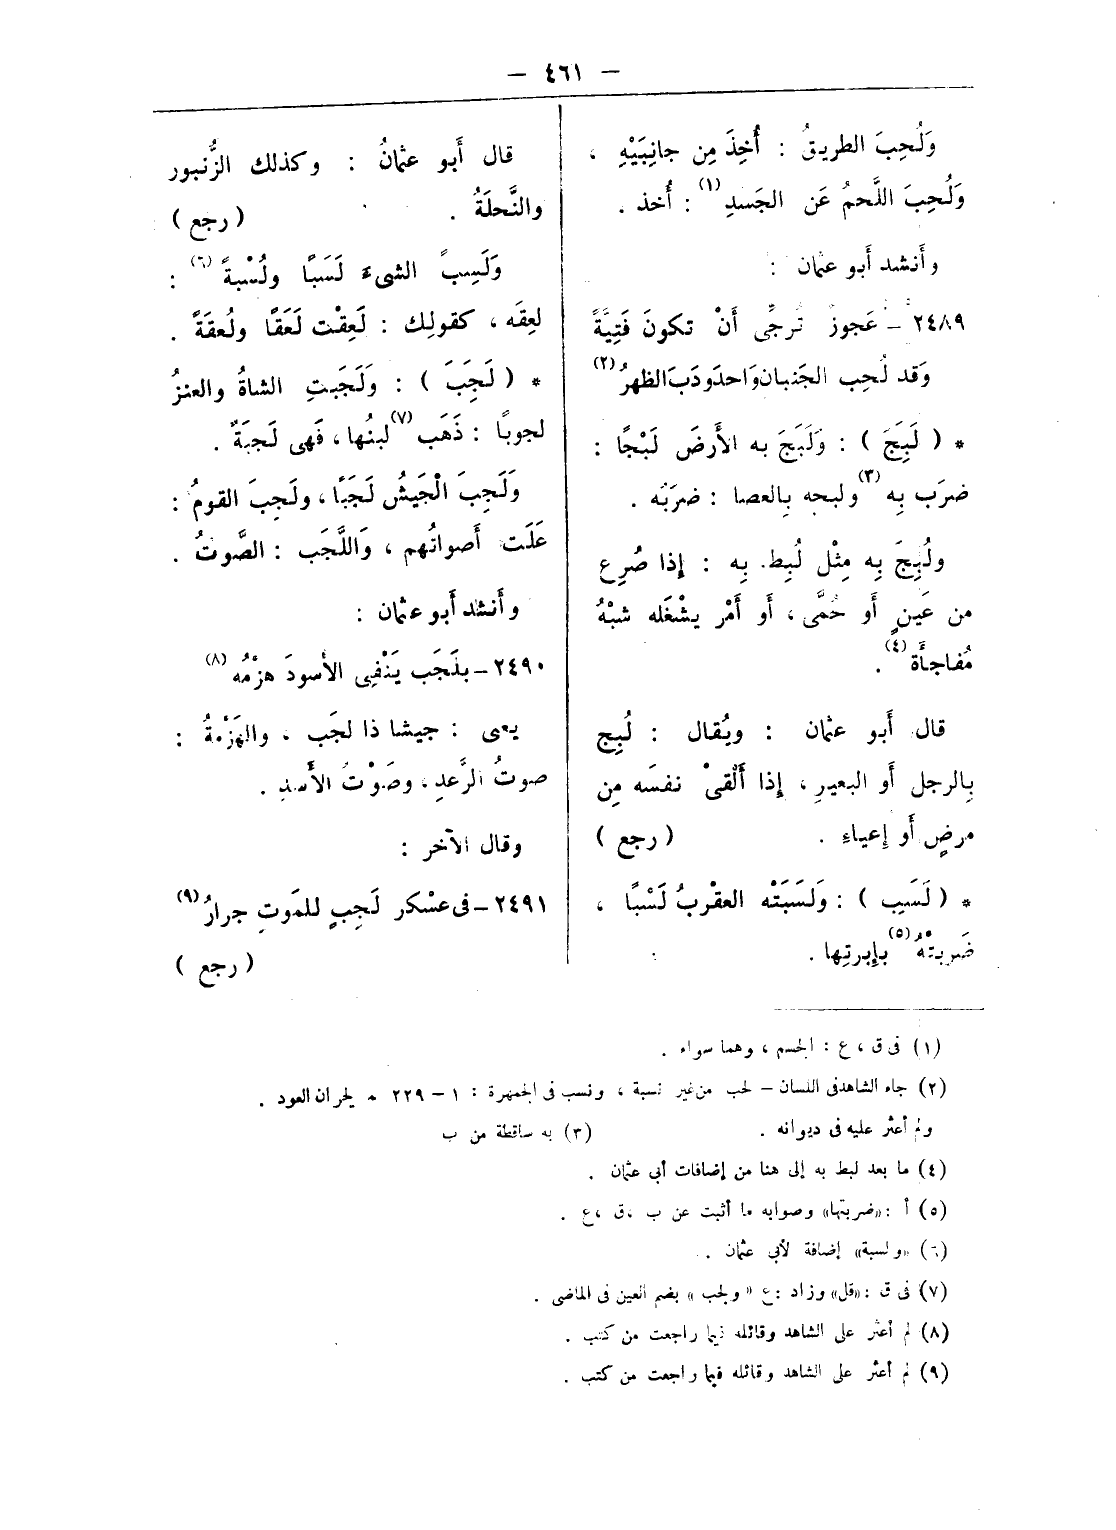 — ٤٦١ —
وَلُحِبَ الطريقُ : أُخِذَ مِن جانِبَيْهِ ،
وَلُحِبَ اللَّحمُ عَن الجَسدِ (١) : أُخذ .
وأنشد أبو عثمان :
٢٤٨٩ – عَجوزٌ تُرجِّى أَنْ تكونَ فَتِيَّةً
وَقد لُحِب الجَنبان وَاحدَودَبَ الظهرُ (٢)
* ( لَبِجَ ) : وَلَبَجَ به الأرضَ لَبْجًا :
ضرَب بِه (٣) ولبجه بِالعصا : ضرَبَه .
ولُبِجَ بِه مِثْل لُبِط بِه : إِذا صُرِع
من عَينٍ أَو حُمَّى ، أَو أَمْر يشْغَله شبْهُ
مُفاجأَة (٤) .
قال أَبو عثمان : ويُقال : لُبِج
بِالرجل أَو البعيرِ ، إِذا أَلْقىْ نفسَه مِن
مرضٍ أَو إِعياءِ . ( رجع )
* ( لَسَبِ ) : وَلسَبَتْه العقْربُ لَسْبًا ،
ضَربتْهُ (٥) بإِبرتِها .
قال أَبو عثمانُ : وكذلك الزُّنبور
والنَّحلَةُ . ( رجع )
وَلَسِبَ الشىءَ لَسَبًا ولُسْبةً (٦) :
لعِقَه ، كقولِك : لَعِقْت لَعَقًا ولُعقَةً .
* ( لَجَبَ ) : وَلَجَبتِ الشاةُ والعنزُ
لجوبًا : ذَهَب (٧) لبنُها ، فَهى لَجبَةٌ .
وَلَجِبَ الْجَيشُ لَجَبًا ، ولَجِبَ القومُ :
عَلَت أَصواتُهم ، وَاللَّجَب : الصَّوتُ .
وأَنشد أَبو عثمان :
٢٤٩٠ – بلَجَب يَنْفِى الأسودَ هزْمُه (٨)
يعى : جيشا ذا لجَب ، والهَزْمةُ :
صوتُ الرَّعدِ ، وصَوْتُ الأَسدِ .
وقال الآخر :
٢٤٩١ – فى عسْكر لَجِبٍ للمَوتِ جرارُ (٩)
( رجع )
(١) فى ق ، ع : الجسم ، وهما سواء .
(٢) جاء الشاهد فى اللسان – لحب من غير نسبة ، ونسب فى الجمهرة : ١ – ٢٢٩ لجران العود .
ولم أعثر عليه فى ديوانه . (٣) به ساقطة من ب
(٤) ما بعد لبط به إلى هنا من إضافات أبى عثمان .
(٥) أ : «ضربتها» وصوابه ما أثبت عن ب ، ق ، ع .
(٦) «ولسبة» إضافة لأبي عثمان .
(٧) فى ق : «قل» وزاد : ع « ولجب » بضم العين فى الماضى .
(٨) لم أعثر على الشاهد وقائله فيما راجعت من كتب .
(٩) لم أعثر على الشاهد وقائله فيما راجعت من كتب .